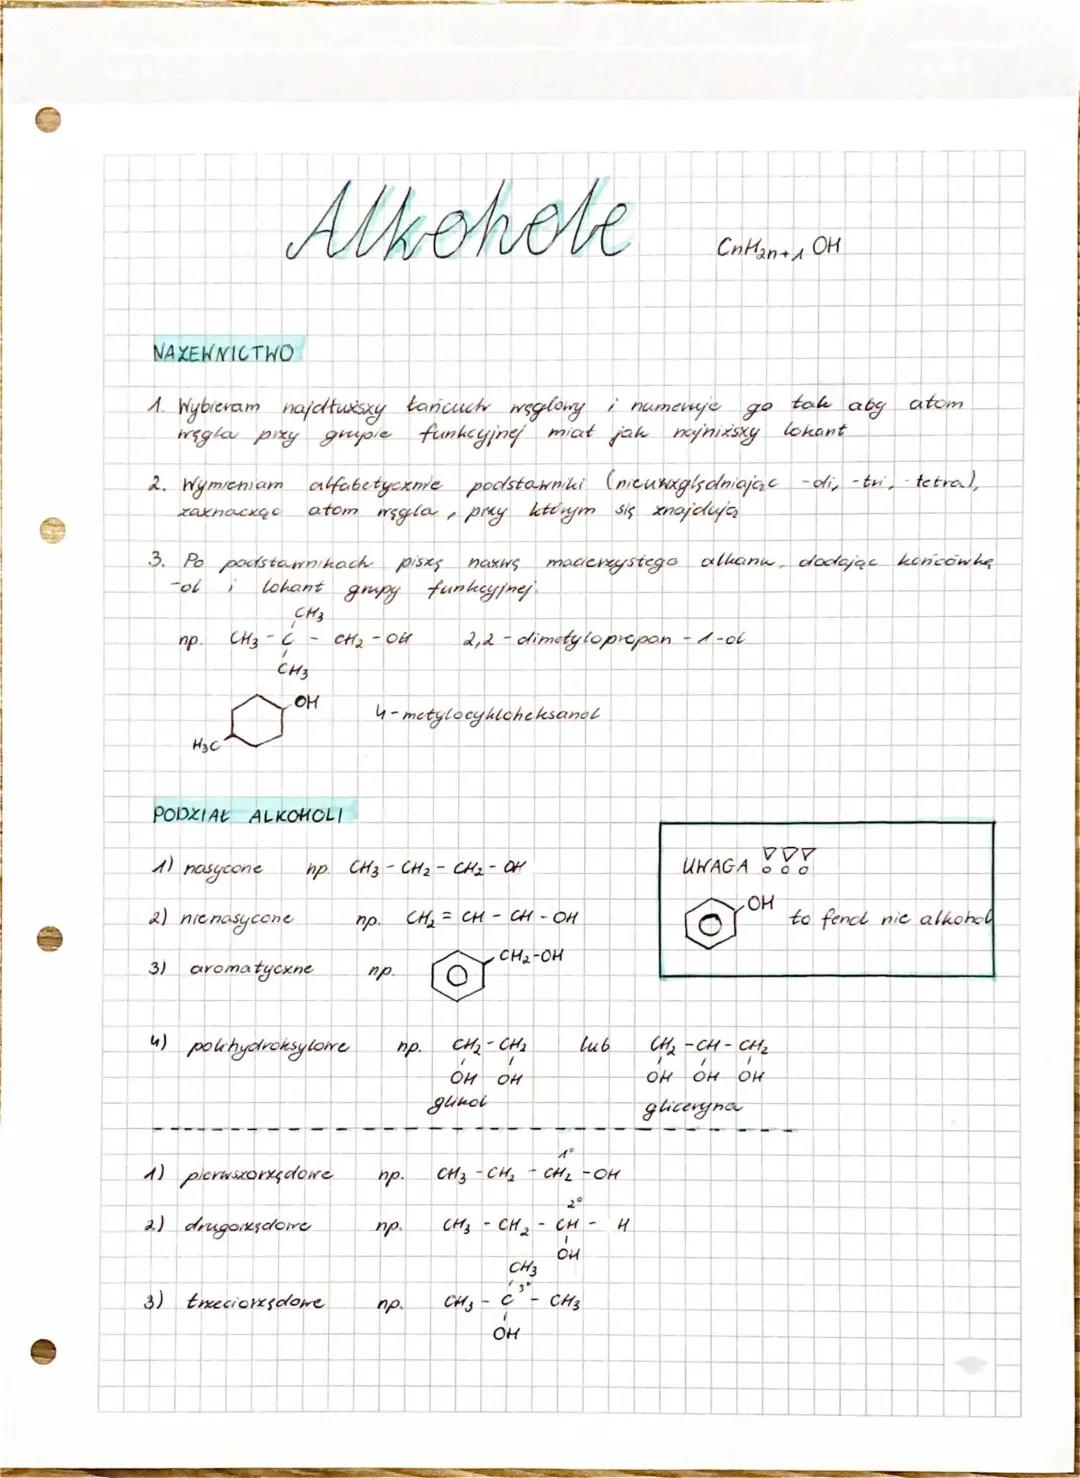 Alkohole CnH2n+1 OH
NAZEWNICTWO
1. Wybieram najdłuższy łańcuch węglowy i numeruję go tak aby atom
węgla przy grupie funkcyjnej miał jak najniższy lokant
2. Wymieniam alfabetycznie podstawniki (nieuwzględniając -di, -tri, -tetra),
zaznacząc atom węgla, przy którym się znajdują
3. Po podstawnikach piszę nazwę macierzystego alkanu, dodając końcówkę
-ol i lokant grupy funkcyjnej.
CH3
np. CH3 - C - CH2 - OH 2,2 - dimetylopropan - 1-ol
CH3
OH
4-metylocykloheksanol
H3C
PODZIAŁ ALKOHOLI
1) nasycone np. CH3 - CH2 - CH2 - OH
2) nienasycone np. CH2 = CH - CH - OH
3) aromatyczne np. CH2-OH
UWAGA !!!
OH
to fenol nie alkohol
4) polihydroksylowe np. CH2 - CH2 lub CH2 - CH - CH2
OH OH OH OH OH
glikol gliceryna
1°
1) pierwszorzędowe np. CH3 - CH2 - CH2 - OH
2°
2) drugorzędowe np. CH3 - CH2 - CH - H
OH
CH3
3°
3) trzeciorzędowe np. CH3 - C - CH3
OH